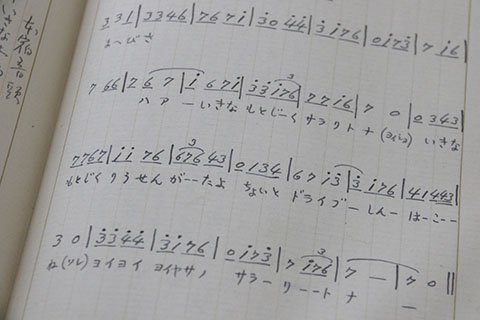 3 3 1 | 3 3 4 6 | 7 6 7 i | 3 0 4 4 | 3 i 7 6 | 0 i 7 3 | 7 i 6 |
7 6 6 | 7 6 7 | i 6 7 i | 3 3 i 7 6 | 7 7 i 6 | 7 0 | 0 3 4 3 |
ハアーいきな もとじーく サラクト ナ (ヨイショ) いきな
7 7 6 7 | i i 7 6 | 6 7 6 4 3 | 0 1 3 4 | 6 7 i 3 | 3 i 7 6 | 4 1 4 4 3 |
もとじく りうせんがーーたよ ちょいと ドライブーしんーはーこーー
3 0 | 3 3 4 4 | 3 i 7 6 | 0 i 7 3 | 7 i 7 6 | 7 — | 7 0 ||
ヨイヨイ ヨイヤサノ サラーリーート ナ ー